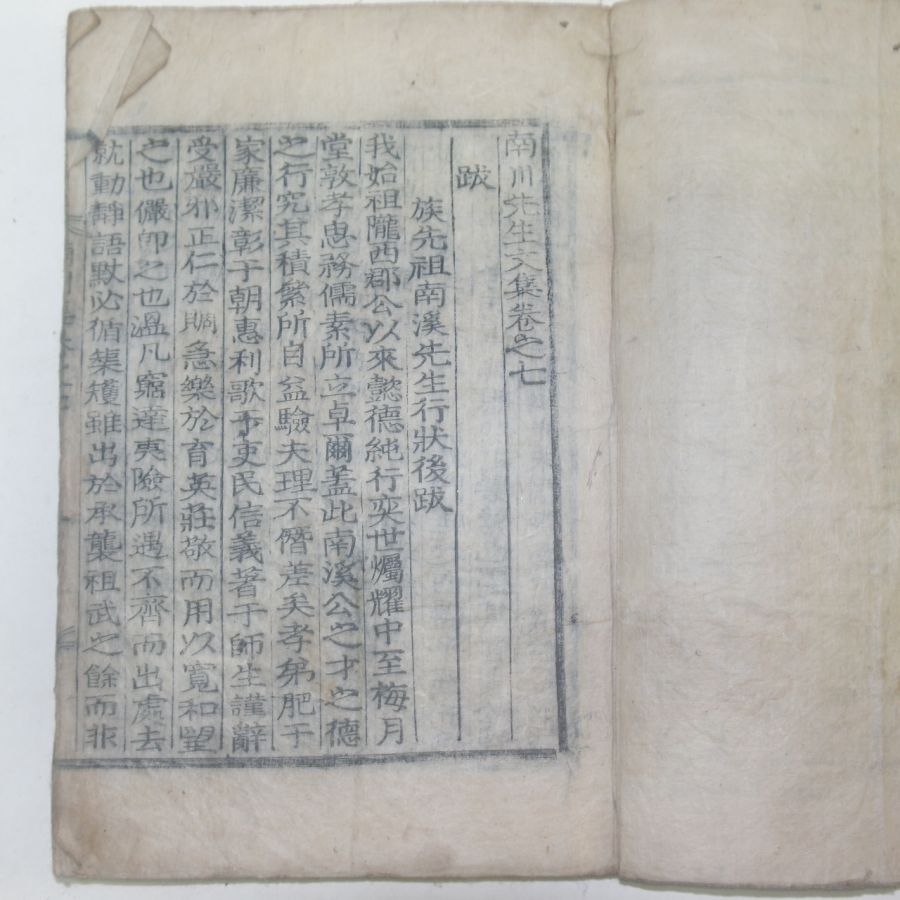 南川先生文集卷之七
跋
族先祖南溪先生行狀後跋
我始祖隴西郡公以來懿德純行奕世燭耀中至梅月
堂敦孝惠務儒素所立卓爾蓋此南溪公之才之德
之行究其積絫所自益驗夫理不僭差矣孝弟肥于
家廉潔彰于朝惠利歌予吏民信義著于師生謹辭
受嚴邪正仁於賙急樂於育英莊敬而用以寬和望
之也儼卽之也溫凡窮達夷險所遇不齊而出處去
就動靜語默必循榘矱雖出於承襲祖武之餘而非